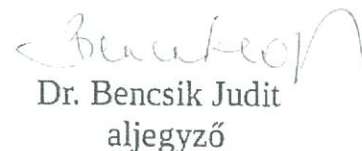 Dr. Bencsik Judit
aljegyző